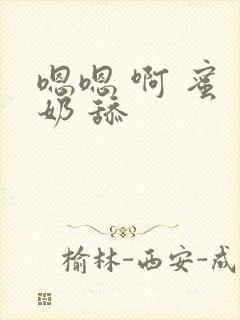 嗯嗯 啊 蜜
奶 舔
榆林-西安-成